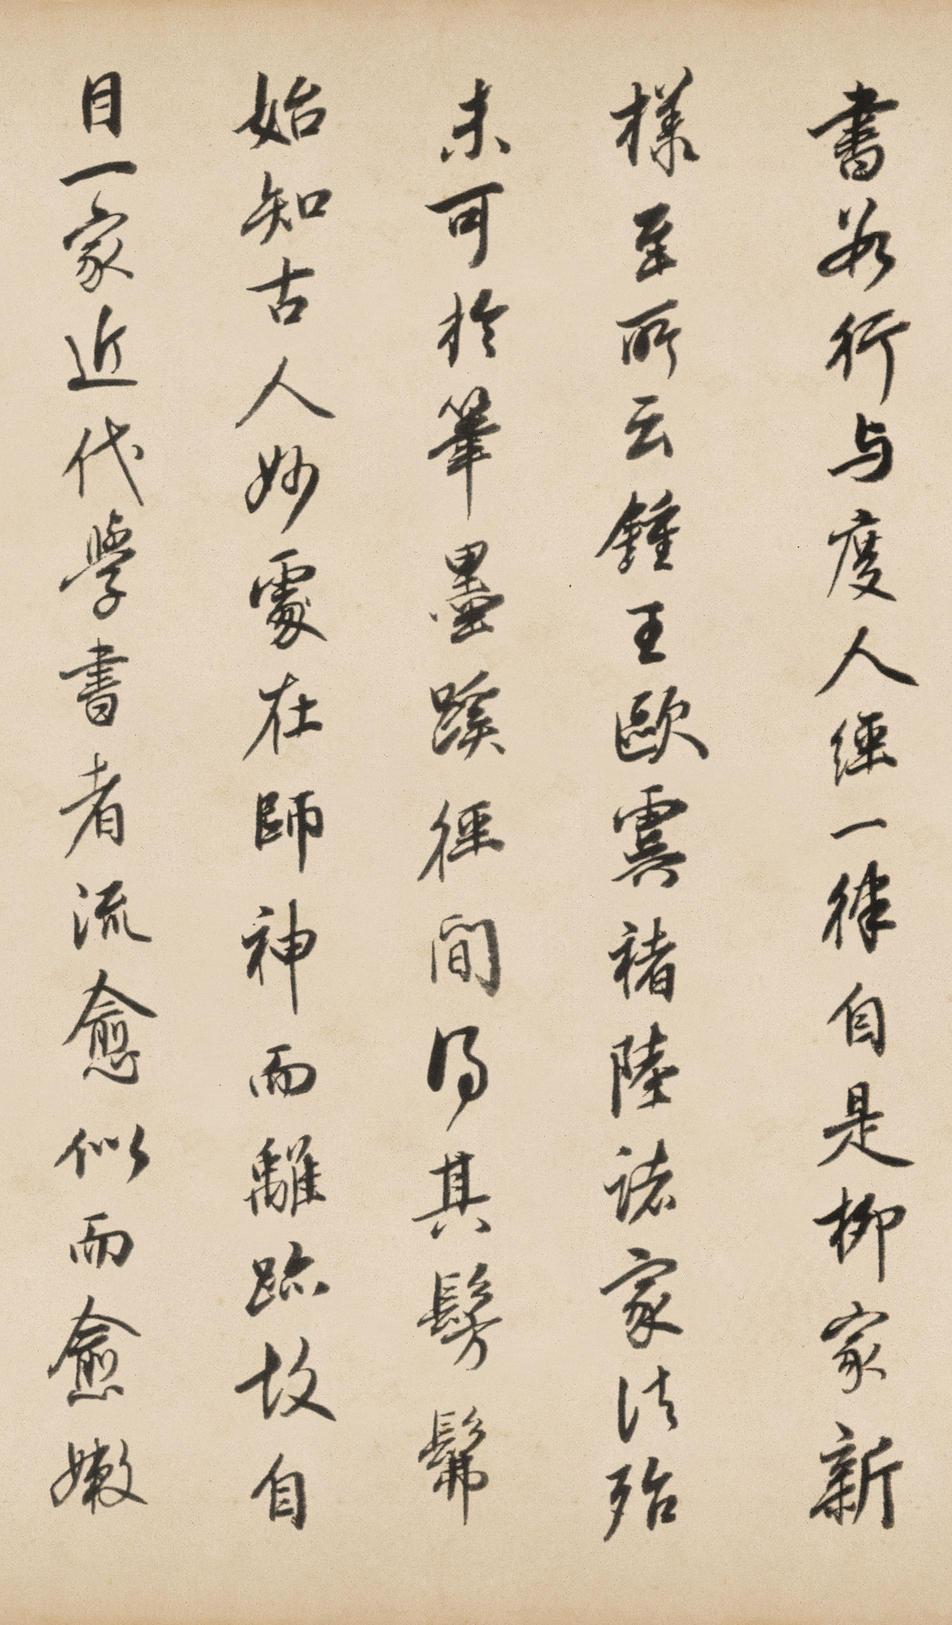 書若行与度人經一律自是柳家新
樣至所云鍾王歐虞褚陸諸家法殆
未可於筆墨蹊徑間得其髣髴
始知古人妙處在師神而離跡故自
目一家近代學書者流愈似而愈嫩